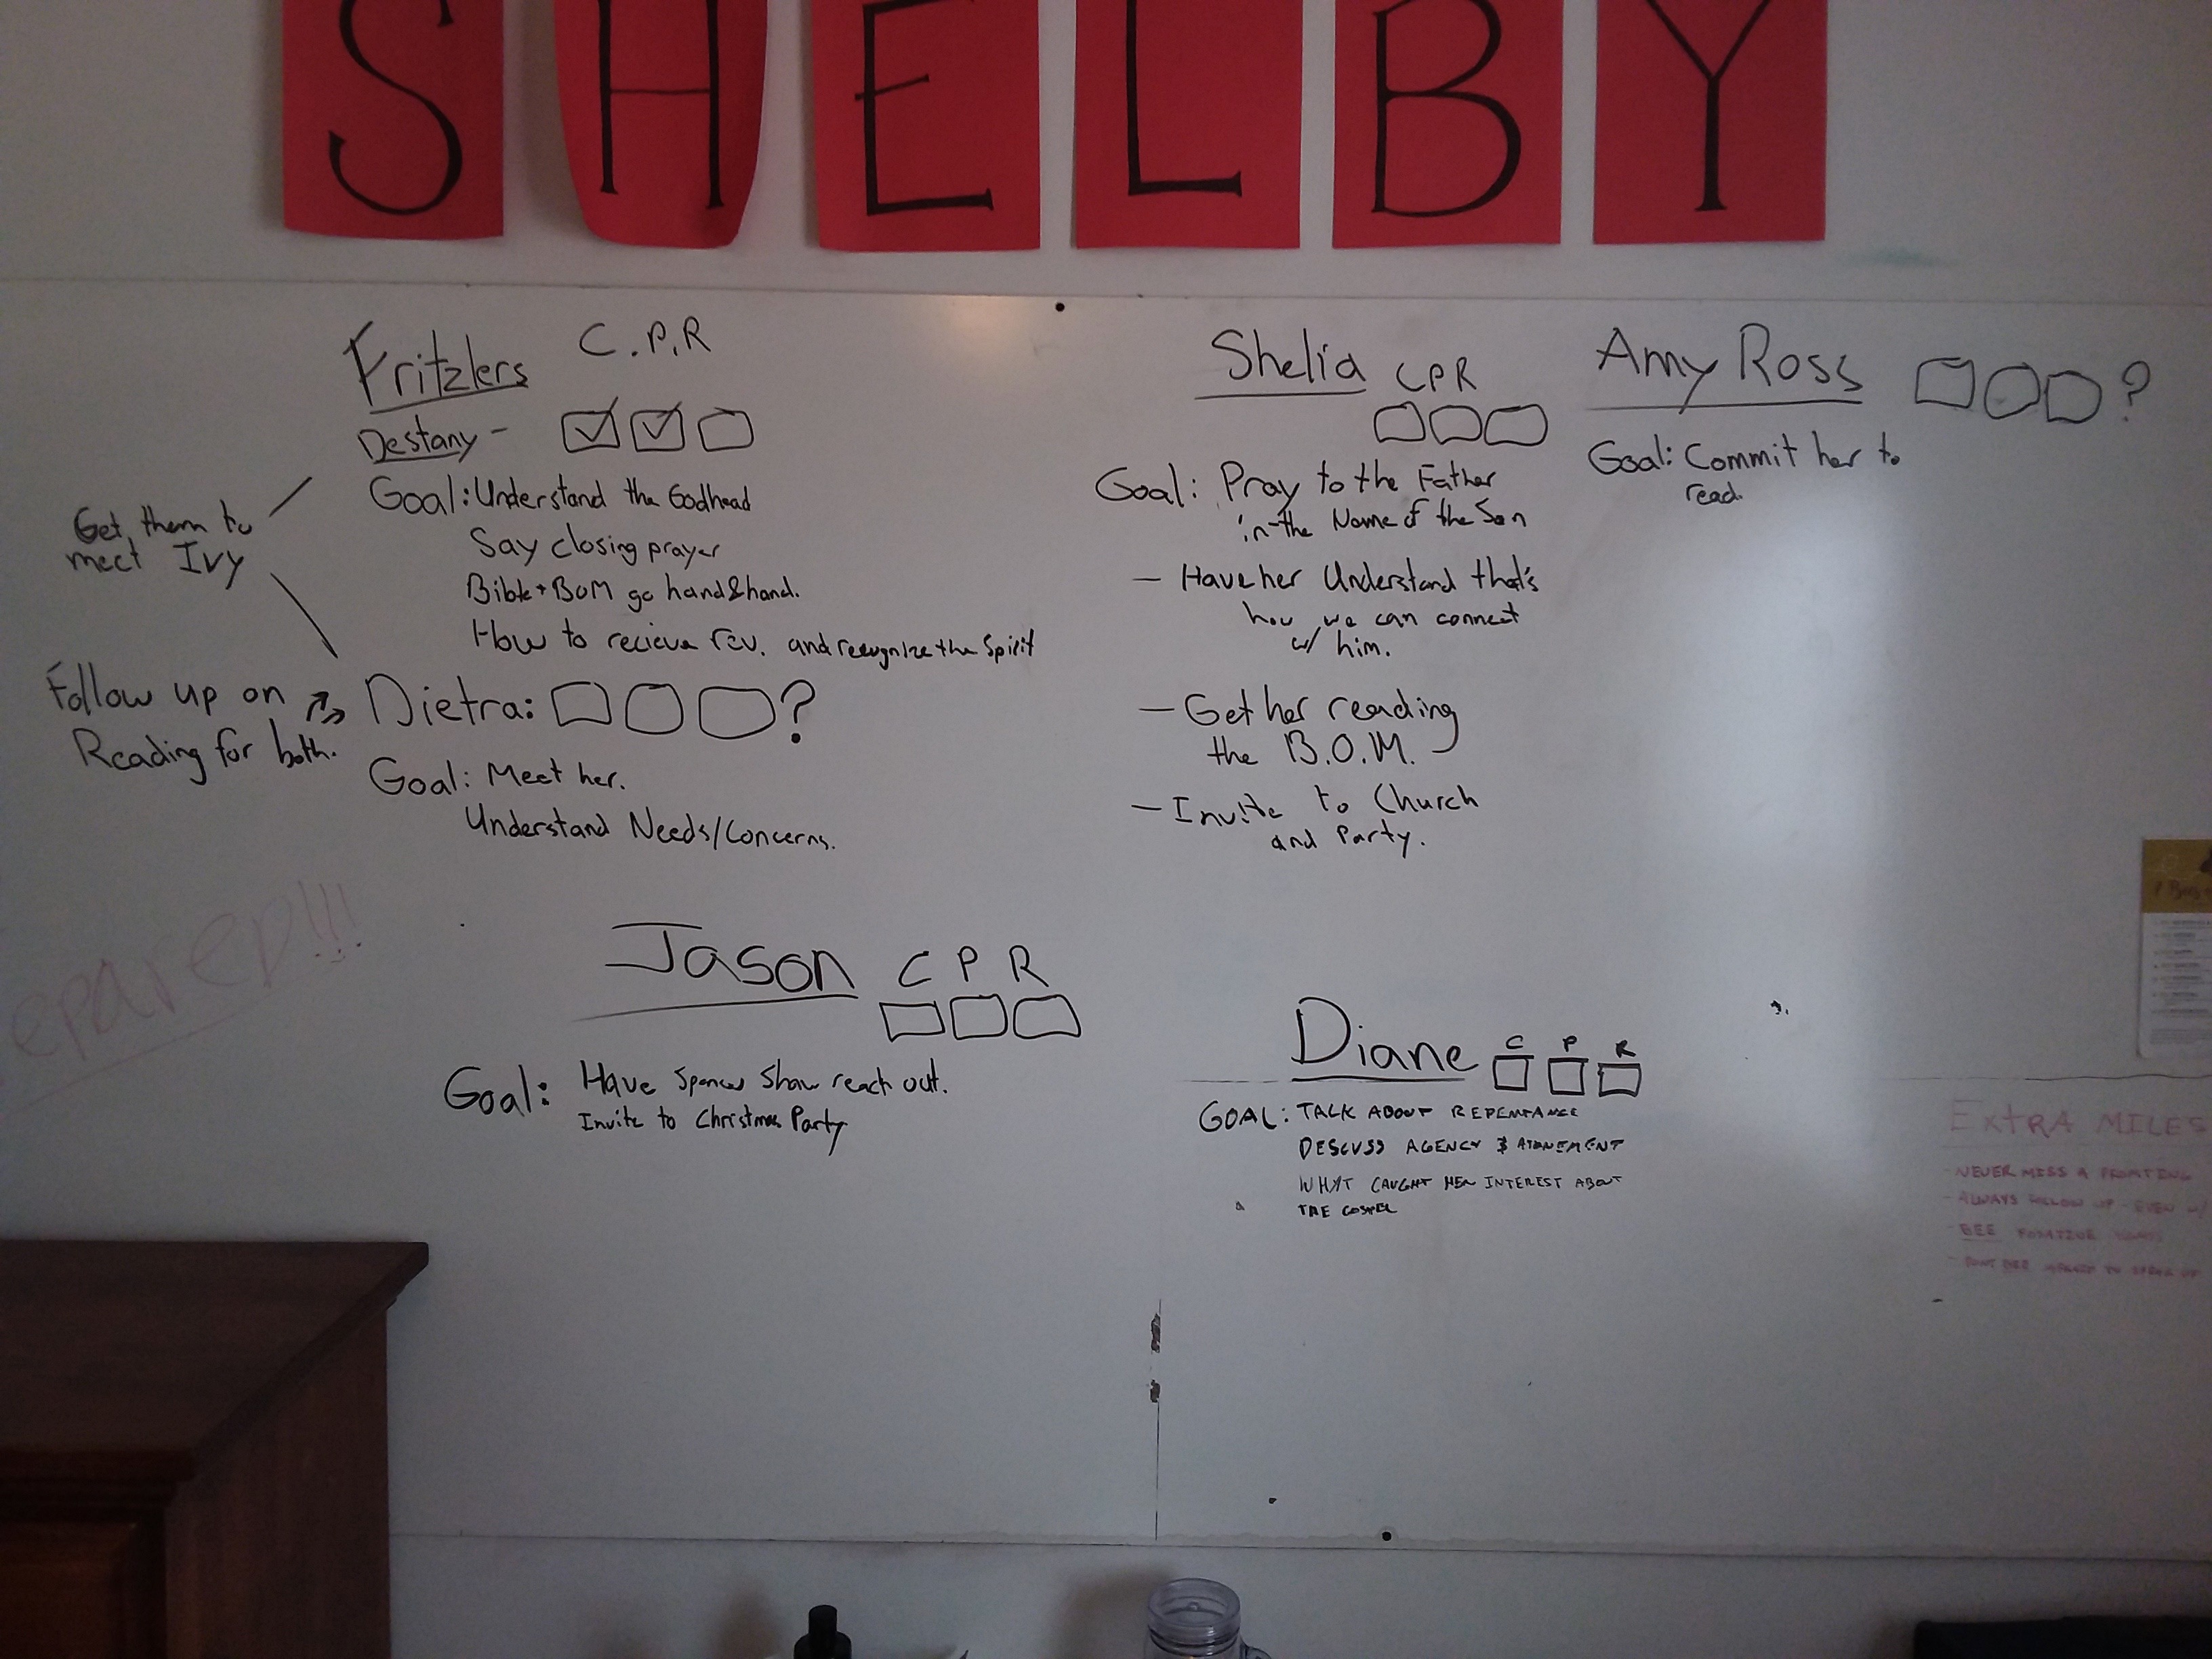 SHELBY
Fritzlers C.P.R
Destany -
Goal: Understand the Godhead
Say closing prayer
Bible + BOM go hand & hand.
How to recieve rev. and recognize the Spirit
Get them to
meet Ivy
Follow up on
Reading for both.
Dietra: ?
Goal: Meet her.
Understand Needs/Concerns.
Shelia CPR
Goal: Pray to the Father
in the Name of the Son
- Have her Understand that's
how we can connect
w/ him.
- Get her reading
the B.O.M.
- Invite to Church
and Party.
Amy Ross ?
Goal: Commit her to
read.
Jason C P R
Goal: Have Spencer Shaw reach out.
Invite to Christmas Party
Diane C P R
GOAL: TALK ABOUT REPENTANCE
DESCUSS AGENCY & ATONEMENT
WHAT CAUGHT HER INTEREST ABOUT
THE GOSPEL
EPARED!!!
EXTRA MILES
- NEVER MISS A PROMTING
- ALWAYS FOLLOW UP - EVEN w/
- BEE